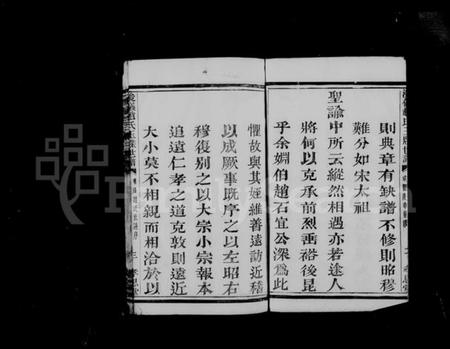 則典章有缺譜不修則昭穆
難分如宋太祖
聖諭中所云縱然相遇亦若途人
將何以克承前烈垂裕後昆
乎余淵伯趙石宜公深為此
懼故與其姪維善遠訪近稽
以成厥事既序之以左昭右
穆復別之以大宗小宗報本
追遠仁孝之道克敦則遠近
大小莫不相親而相洽於以